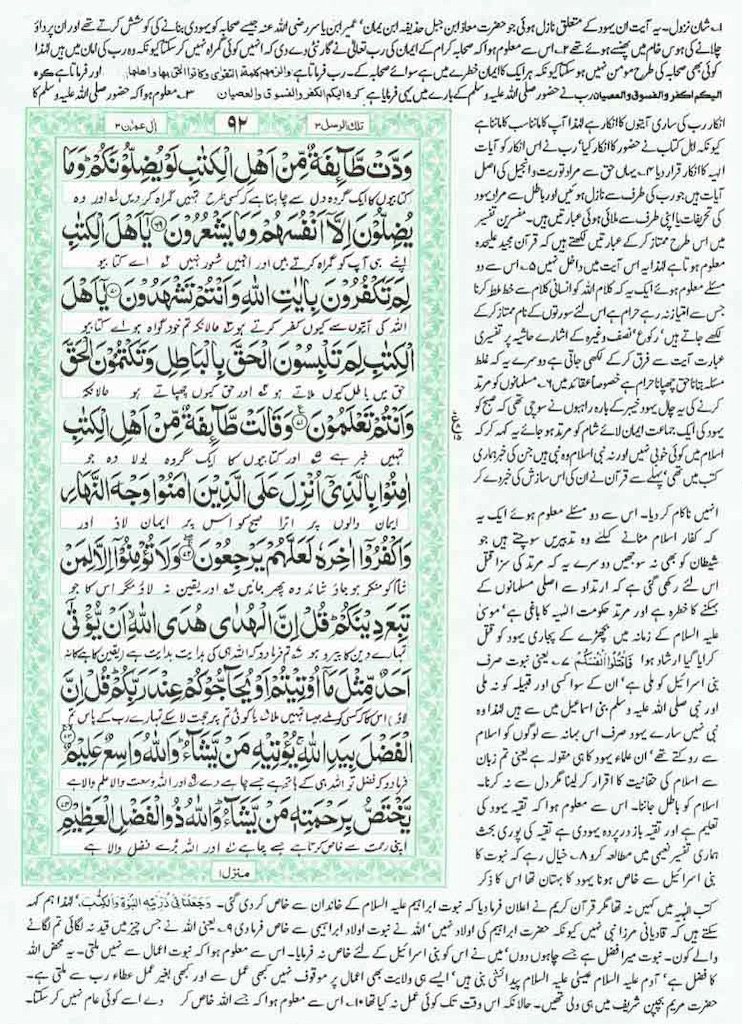 ۱۔ شان نزول۔ یہ آیت ان یہود کے متعلق نازل ہوئی جو حضرت معاذ ابن جبل حذیفہ ابن یمان، عمیر ابن یاسر رضی اللہ عنہ جیسے صحابہ کو یہودی بنانے کی کوشش کرتے تھے اور ان پر داؤ
چلانے کی ہوس خام میں پھنسے ہوئے تھے ۲۔ اس سے معلوم ہوا کہ صحابہ کرام کے ایمان کی رب تعالیٰ نے گارنٹی دے دی کہ انہیں کوئی گمراہ نہیں کر سکتا کیونکہ وہ رب کی امان میں ہیں لہٰذا
کوئی بھی صحابہ کی طرح مومن نہیں ہو سکتا کیونکہ ہر ایک کا ایمان خطرے میں ہے سوائے صحابہ کے۔ رب فرماتا ہے والزمهم كلمة التقوٰى وكانوا احق بها واهلها اور فرماتا ہے كره
اليكم الكفر والفسوق والعصيان رب نے حضور صلی اللہ علیہ وسلم کے بارے میں یہی فرمایا ہے كره اليكم الكفر والفسوق والعصيان ۳۔ معلوم ہوا کہ حضور صلی اللہ علیہ وسلم کا
تلك الرسل ۳ ۹۲ اٰل عمرٰن ۳
وَدَّتْ طَّآئِفَةٌ مِّنْ اَهْلِ الْكِتٰبِ لَوْ يُضِلُّوْنَكُمْ وَمَا
کتابیوں کا ایک گروہ دل سے چاہتا ہے کہ کسی طرح تمہیں گمراہ کر دیں اور وہ
يُضِلُّوْنَ اِلَّاۤ اَنْفُسَهُمْ وَمَا يَشْعُرُوْنَ ۶۹ يٰۤاَهْلَ الْكِتٰبِ
اپنے ہی آپ کو گمراہ کرتے ہیں اور انہیں شعور نہیں اے کتابیو
لِمَ تَكْفُرُوْنَ بِاٰيٰتِ اللّٰهِ وَاَنْتُمْ تَشْهَدُوْنَ ۷۰ يٰۤاَهْلَ
اللہ کی آیتوں سے کیوں کفر کرتے ہو حالانکہ تم خود گواہ ہو اے کتابیو
الْكِتٰبِ لِمَ تَلْبِسُوْنَ الْحَقَّ بِالْبَاطِلِ وَتَكْتُمُوْنَ الْحَقَّ
حق میں باطل کیوں ملاتے ہو اور حق کیوں چھپاتے ہو حالانکہ
وَاَنْتُمْ تَعْلَمُوْنَ ۷۱ وَقَالَتْ طَّآئِفَةٌ مِّنْ اَهْلِ الْكِتٰبِ
تمہیں خبر ہے اور کتابیوں کا ایک گروہ بولا وہ جو
اٰمِنُوْا بِالَّذِيْۤ اُنْزِلَ عَلَى الَّذِيْنَ اٰمَنُوْا وَجْهَ النَّهَارِ
ایمان والوں پر اترا صبح کو اس پر ایمان لاؤ اور
وَاكْفُرُوْۤا اٰخِرَهٗ لَعَلَّهُمْ يَرْجِعُوْنَ ۷۲ وَلَا تُؤْمِنُوْۤا اِلَّا لِمَنْ
شام کو منکر ہو جاؤ شاید وہ پھر جائیں اور یقین نہ لاؤ مگر اس کا جو
تَبِعَ دِيْنَكُمْ قُلْ اِنَّ الْهُدٰى هُدَى اللّٰهِ اَنْ يُّؤْتٰۤى
تمہارے دین کا پیرو ہو تم فرما دو کہ اللہ ہی کی ہدایت ہدایت ہے (یقین کاہے کا نہ
اَحَدٌ مِّثْلَ مَاۤ اُوْتِيْتُمْ اَوْ يُحَآجُّوْكُمْ عِنْدَ رَبِّكُمْ قُلْ اِنَّ
لاؤ) اس کا کہ کسی کو ملے جیسا تمہیں ملا یا کوئی تم پر حجت لا سکے تمہارے رب کے پاس تم
الْفَضْلَ بِيَدِ اللّٰهِ يُؤْتِيْهِ مَنْ يَّشَآءُ وَاللّٰهُ وَاسِعٌ عَلِيْمٌ ۷۳
فرما دو کہ فضل تو اللہ ہی کے ہاتھ ہے جسے چاہے دے اور اللہ وسعت والا علم والا ہے
يَّخْتَصُّ بِرَحْمَتِهٖ مَنْ يَّشَآءُ وَاللّٰهُ ذُو الْفَضْلِ الْعَظِيْمِ ۷۴
اپنی رحمت سے خاص کرتا ہے جسے چاہے اور اللہ بڑے فضل والا ہے
منزل ۱
انکار رب کی ساری آیتوں کا انکار ہے لہٰذا آپ کا ماننا سب کا ماننا ہے
کیونکہ اہل کتاب نے حضور کا انکار کیا، رب نے اس کو آیات
الٰہیہ کا انکار قرار دیا ۴۔ یہاں حق سے مراد توریت و انجیل کی اصل
آیات ہیں جو رب کی طرف سے نازل ہوئیں اور باطل سے مراد یہود
کی تحریفات یا اپنی طرف سے ملائی ہوئی عبارتیں ہیں۔ مفسرین تفسیر
میں اس طرح ممتاز کر کے عبارتیں لکھتے ہیں کہ قرآن مجید علیحدہ
معلوم ہوتا ہے لہٰذا یہ اس آیت میں داخل نہیں ۵۔ اس سے دو
مسئلے معلوم ہوئے ایک یہ کہ کلام اللہ کو انسانی کلام سے خلط ملط کرنا
جس سے امتیاز نہ رہے حرام ہے اس لئے سورتوں کے نام ممتاز کر کے
لکھے جاتے ہیں، رکوع، نصف وغیرہ کے اشارے حاشیہ پر تفسیری
عبارت آیت سے فرق کر کے لکھی جاتی ہے دوسرے یہ کہ غلط
مسئلہ بتانا حق چھپانا حرام ہے خصوصاً عقائد میں ۶۔ مسلمانوں کو مرتد
کرنے کی یہ چال یہود خیبر کے بارہ راہبوں نے سوچی تھی کہ صبح کو
یہود کی ایک جماعت ایمان لائے شام کو مرتد ہو جائے یہ کہہ کر کہ
اسلام میں کوئی خوبی نہیں اور نہ نبی اسلام وہ نبی ہیں جن کی خبر ہماری
کتب میں تھی، پہلے سے قرآن نے ان کی اس سازش کی خبر دے کر
انہیں ناکام کر دیا۔ اس سے دو مسئلے معلوم ہوئے ایک یہ
کہ کفار اسلام مٹانے کیلئے وہ تدبیریں سوچتے ہیں جو
شیطان کو بھی نہ سوجھیں دوسرے یہ کہ مرتد کی سزا قتل
اس لئے رکھی گئی ہے کہ ارتداد سے اصلی مسلمانوں کے
بہکنے کا خطرہ ہے اور مرتد حکومت الٰہیہ کا باغی ہے، موسیٰ
علیہ السلام کے زمانہ میں بچھڑے کے پجاری یہود کو قتل
کرایا گیا ارشاد ہوا فَاقْتُلُوْۤا اَنْفُسَكُمْ ۷۔ یعنی نبوت صرف
بنی اسرائیل کو ملی ہے، ان کے سوا کسی اور قبیلہ کو نہ ملی
اور نبی صلی اللہ علیہ وسلم بنی اسماعیل میں سے ہیں لہٰذا وہ
نبی نہیں سارے یہود اس بہانہ سے لوگوں کو اسلام
سے روکتے تھے، ان علماء یہود کا ہی مقولہ ہے یعنی تم زبان
سے اسلام کی حقانیت کا اقرار کر لینا مگر دل سے نہ کرنا۔
اسلام کو باطل جاننا۔ اس سے معلوم ہوا کہ تقیہ یہود کی
تعلیم ہے اور تقیہ باز درپردہ یہودی ہے تقیہ کی پوری بحث
ہماری تفسیر نعیمی میں مطالعہ کرو ۸۔ خیال رہے کہ نبوت کا
بنی اسرائیل سے خاص ہونا یہود کا بہتان تھا اس کا ذکر
کتب الٰہیہ میں کہیں نہ تھا مگر قرآن کریم نے اعلان فرما دیا کہ نبوت ابراہیم علیہ السلام کے خاندان سے خاص کر دی گئی۔ وَجَعَلْنَا فِيْ ذُرِّيَّتِهِ النُّبُوَّةَ وَالْكِتٰبَ، لہٰذا ہم کہہ
سکتے ہیں کہ قادیانی مرزا نبی نہیں کیونکہ حضرت ابراہیم کی اولاد نہیں، اللہ نے نبوت اولاد ابراہیمی سے خاص فرما دی ۹۔ یعنی اللہ نے جس چیز میں قید نہ لگائی تم لگانے
والے کون۔ نبوت میرا فضل ہے جسے چاہوں دوں، میں نے اس کو بنی اسرائیل کے لئے خاص نہ فرمایا۔ اس سے معلوم ہوا کہ نبوت اعمال سے نہیں ملتی۔ یہ محض اللہ
کا فضل ہے، آدم علیہ السلام عیسیٰ علیہ السلام پیدائشی نبی ہیں، ایسے ہی ولایت بھی اعمال پر موقوف نہیں کبھی عمل سے اور کبھی بغیر عمل عطاء رب سے ملتی ہے۔
حضرت مریم بچپن شریف میں ہی ولی تھیں۔ حالانکہ اس وقت تک کوئی عمل نہ کیا تھا ۱۰۔ اس سے معلوم ہوا کہ جسے اللہ خاص کر دے اسے کوئی عام نہیں کر سکتا۔